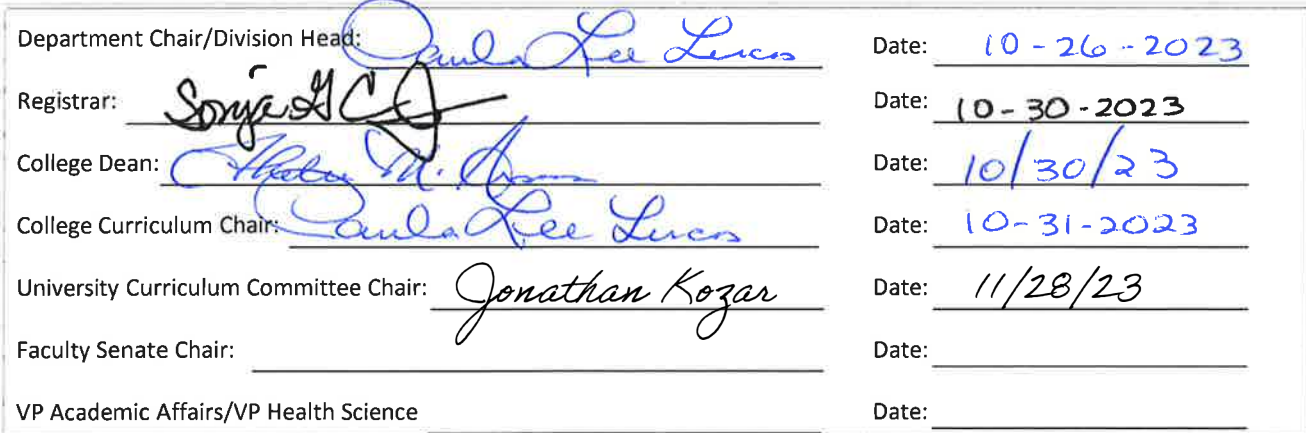 Department Chair/Division Head: Paula Lee Lucas Date: 10-26-2023
Registrar: Sonja G C Date: 10-30-2023
College Dean: M. Date: 10/30/23
College Curriculum Chair: Paula Lee Lucas Date: 10-31-2023
University Curriculum Committee Chair: Jonathan Kozar Date: 11/28/23
Faculty Senate Chair: Date:
VP Academic Affairs/VP Health Science Date: